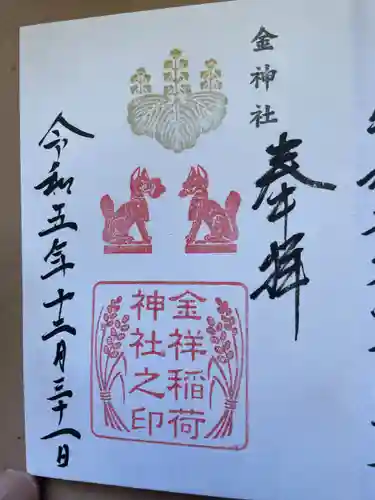 金神社
奉拝
金祥稲荷
神社之印
令和五年十二月三十一日